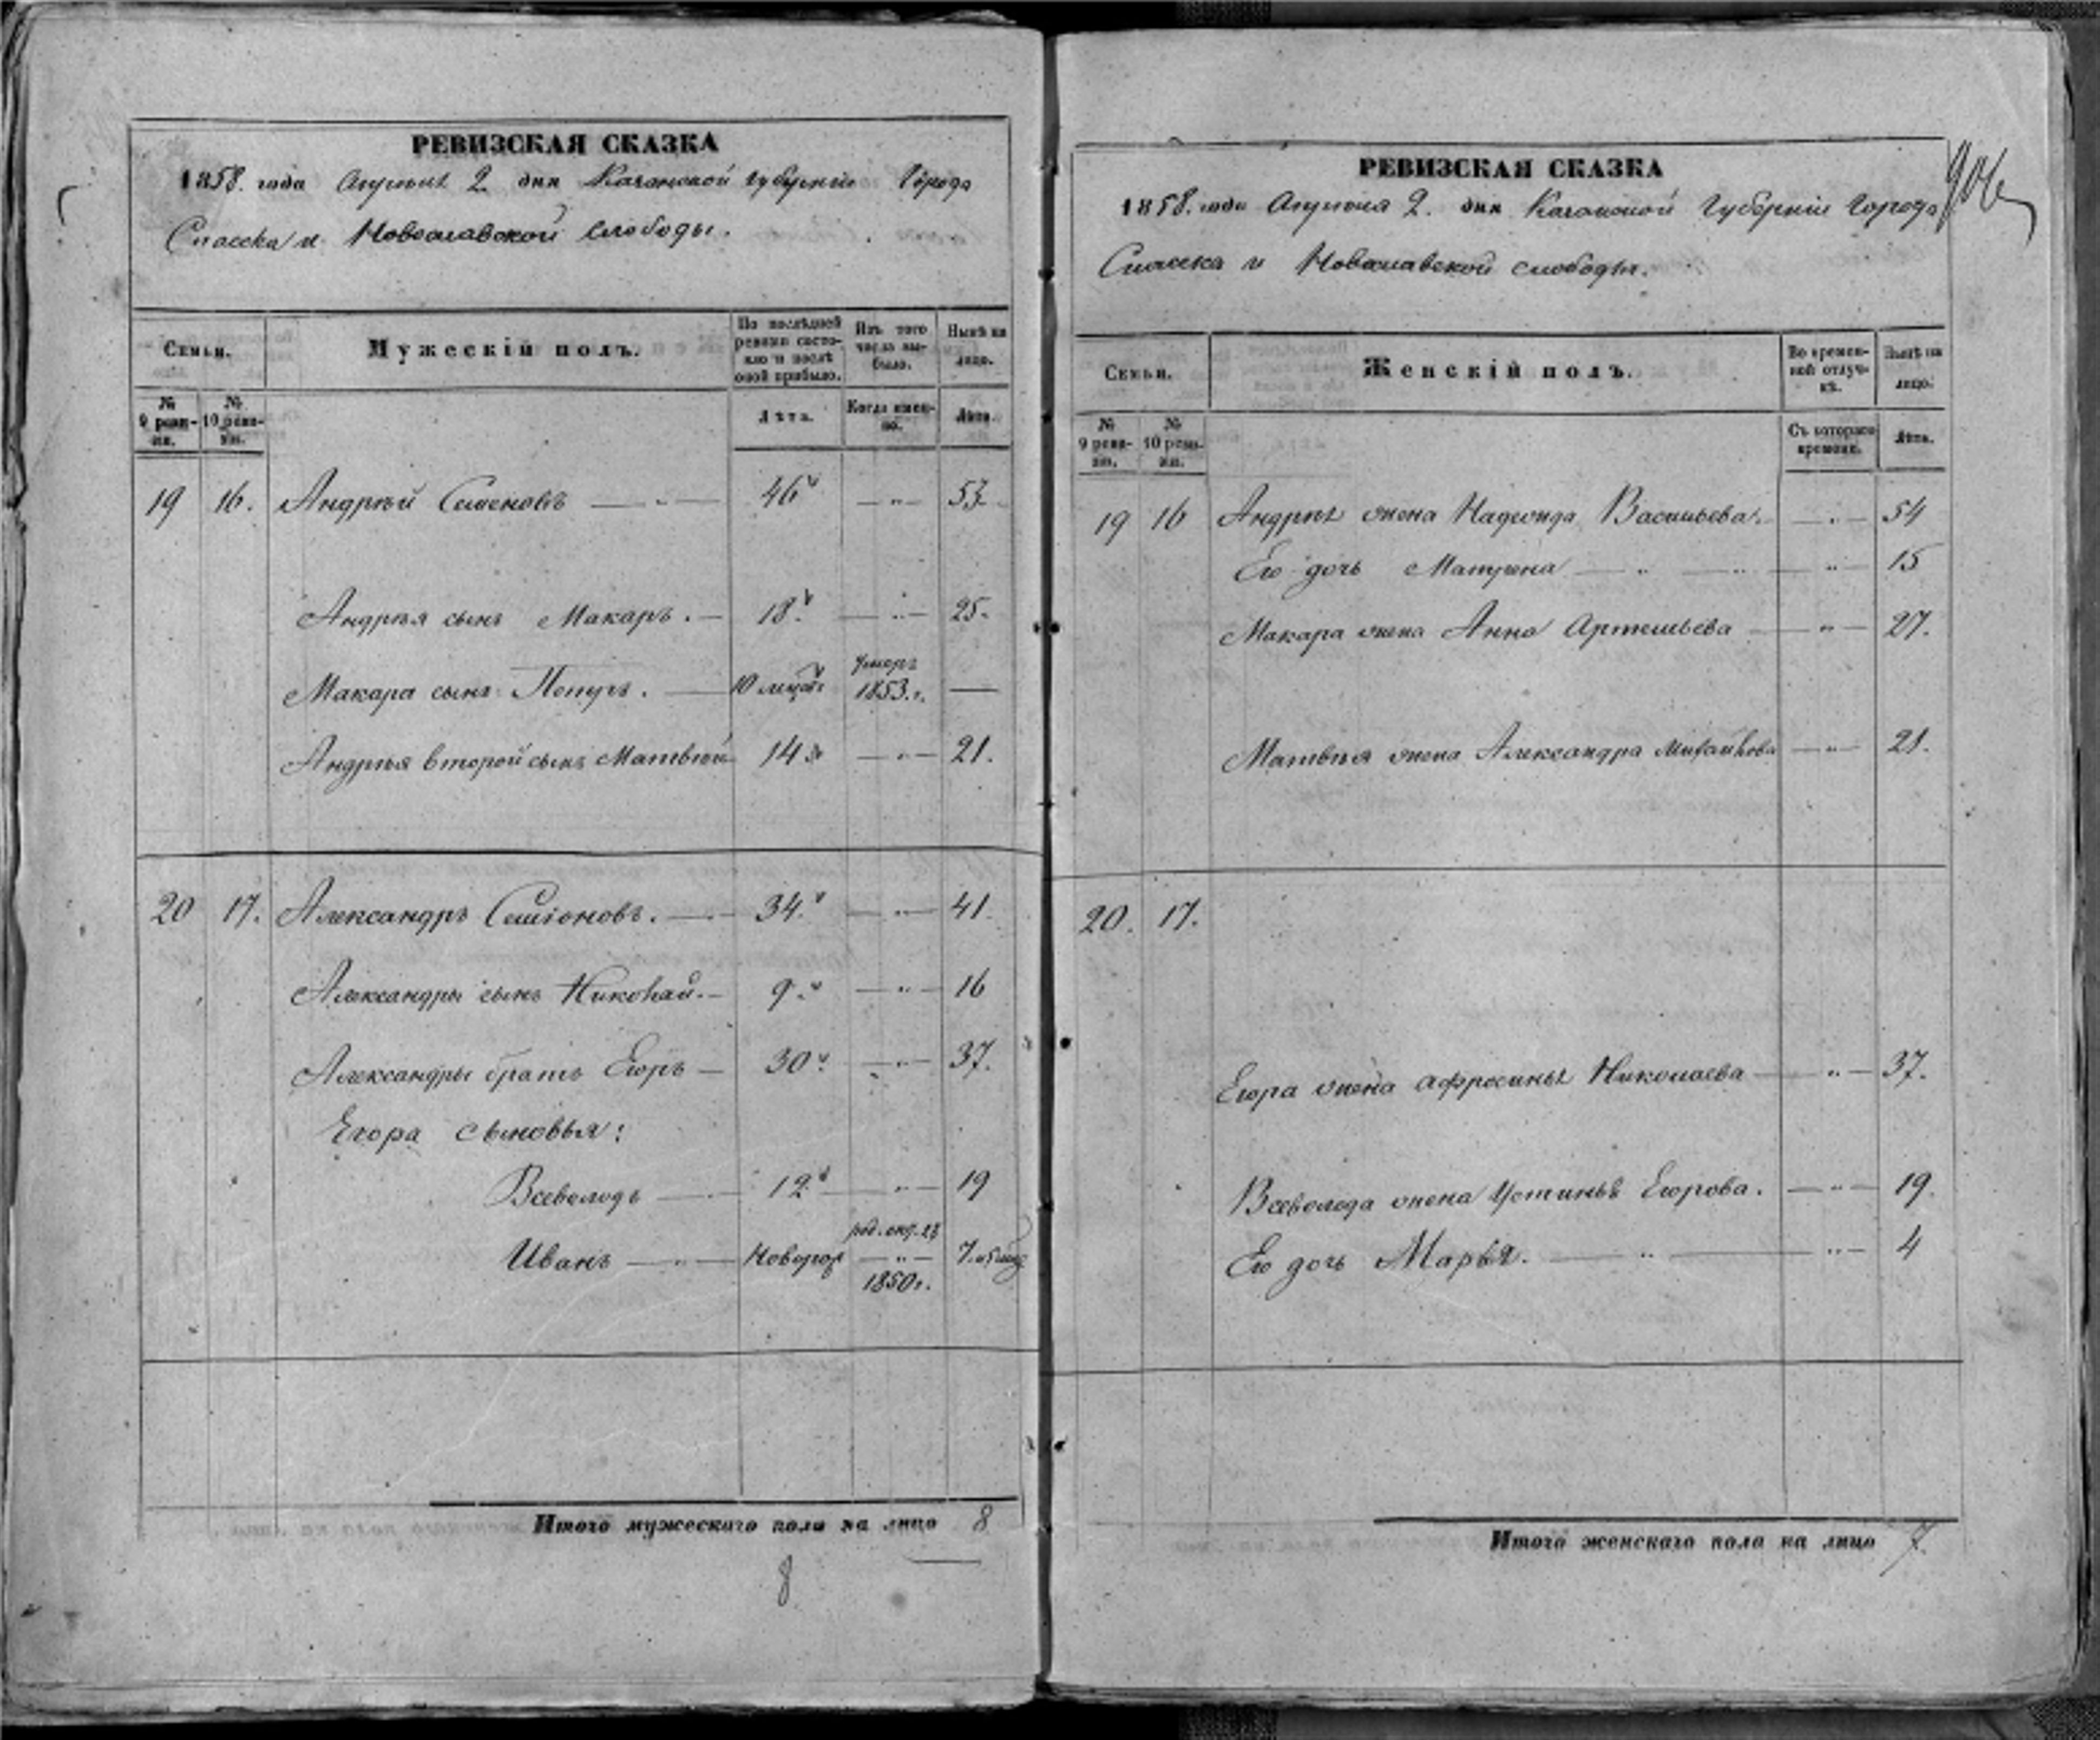 РЕВИЗСКАЯ СКАЗКА
1858. года Апреля 2 дня Казанской губернiи Города
Спасска и Новославской слободы.
Семьи.
Мужескiй полъ.
По послѣдней ревизiи состояло и послѣ оной прибыло.
Изъ того числа выбыло.
Нынѣ на лицо.
№ 9 ревизiи.
№ 10 ревизiи.
Лѣта.
Когда именно.
Лѣта.
19 16. Андрѣй Семеновъ — „ — 46 — „ — 53
Андрѣя сынъ Макаръ. — 18. — „ — 25.
Макара сынъ Петръ. — 10 умеръ 1853. г. —
Андрѣя второй сынъ Матвѣй 14 — „ — 21.
20 17. Александръ Семiоновъ. — 34. — „ — 41.
Александры сынъ Николай. — 9. — „ — 16
Александры братъ Егоръ — 30 — „ — 37.
Егора сыновья:
Всеволодъ — 12 — „ — 19
Иванъ — „ — Новорож род. 1850 г. 7.
Итого мужескаго пола на лицо 8
8
РЕВИЗСКАЯ СКАЗКА
1858. года Апреля 2. дня Казанской Губернiи Города
Спасска и Новославской слободы.
Семьи.
Женскiй полъ.
Во временной отлучкѣ.
Нынѣ на лицо.
№ 9 ревизiи.
№ 10 ревизiи.
Съ котораго времени.
Лѣта.
19 16 Андрѣя жена Надежда Васильева. — „ — 54
Его дочь Матрена — „ — „ — „ — 15
Макара жена Анна Артемьева — „ — 27.
Матвѣя жена Александра Михайлова — „ — 21.
20. 17.
Егора жена Афросинья Николаева — „ — 37.
Всеволода жена Устинья Егорова. — „ — 19.
Его дочь Марья. — „ — „ — 4
Итого женскаго пола на лицо 7.